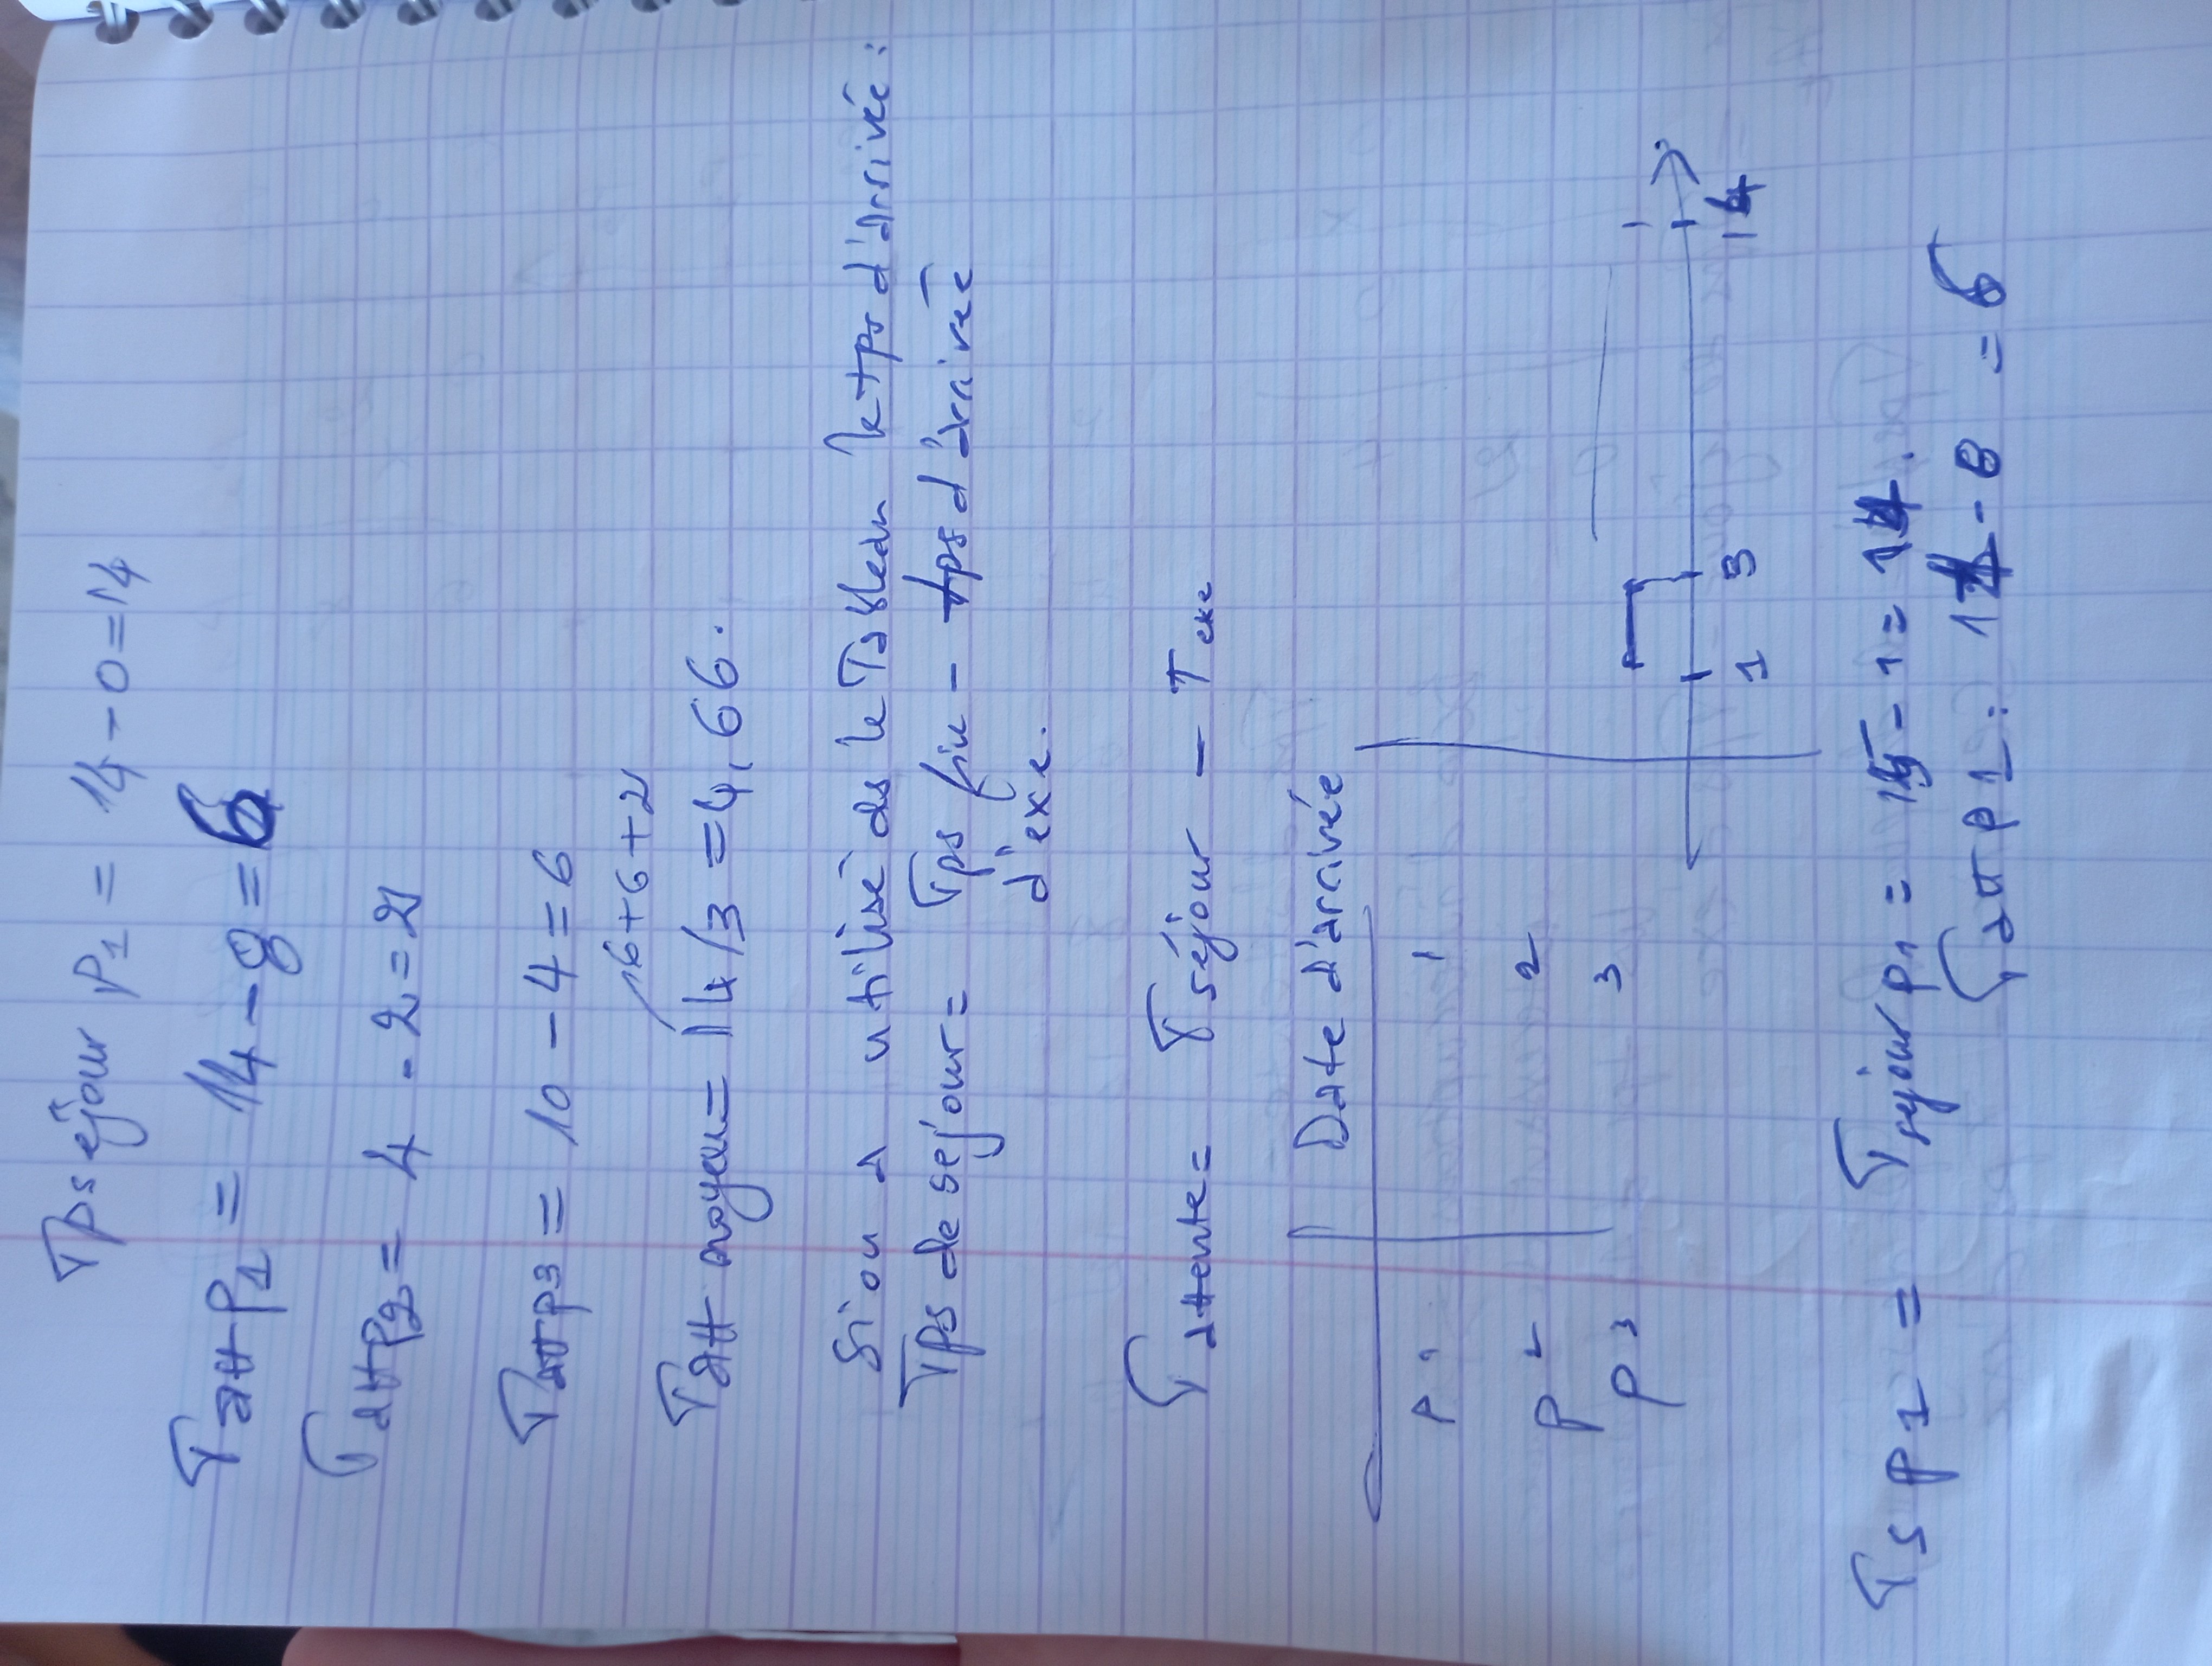 Tps séjour P1 = 14 - 0 = 14
Tatt P1 = 14 - 8 = 6
Tatt P2 = 4 - 2 = 2
Tatt P3 = 10 - 4 = 6
6 + 6 + 2
Tatt moyen = 14/3 = 4,66.
Si on a utilisé ds le Tableau le tps d'arrivée :
Tps de sejour = Tps fin - tps d'arrivée
d'exe.
Tattente = Tséjour - Texe
Date d'arrivée
P1 1
P2 2
P3 3
1 3 14
Ts P1 = Tsejour P1 = 15 - 1 = 14.
Tatt P1 : 14 - 8 = 6